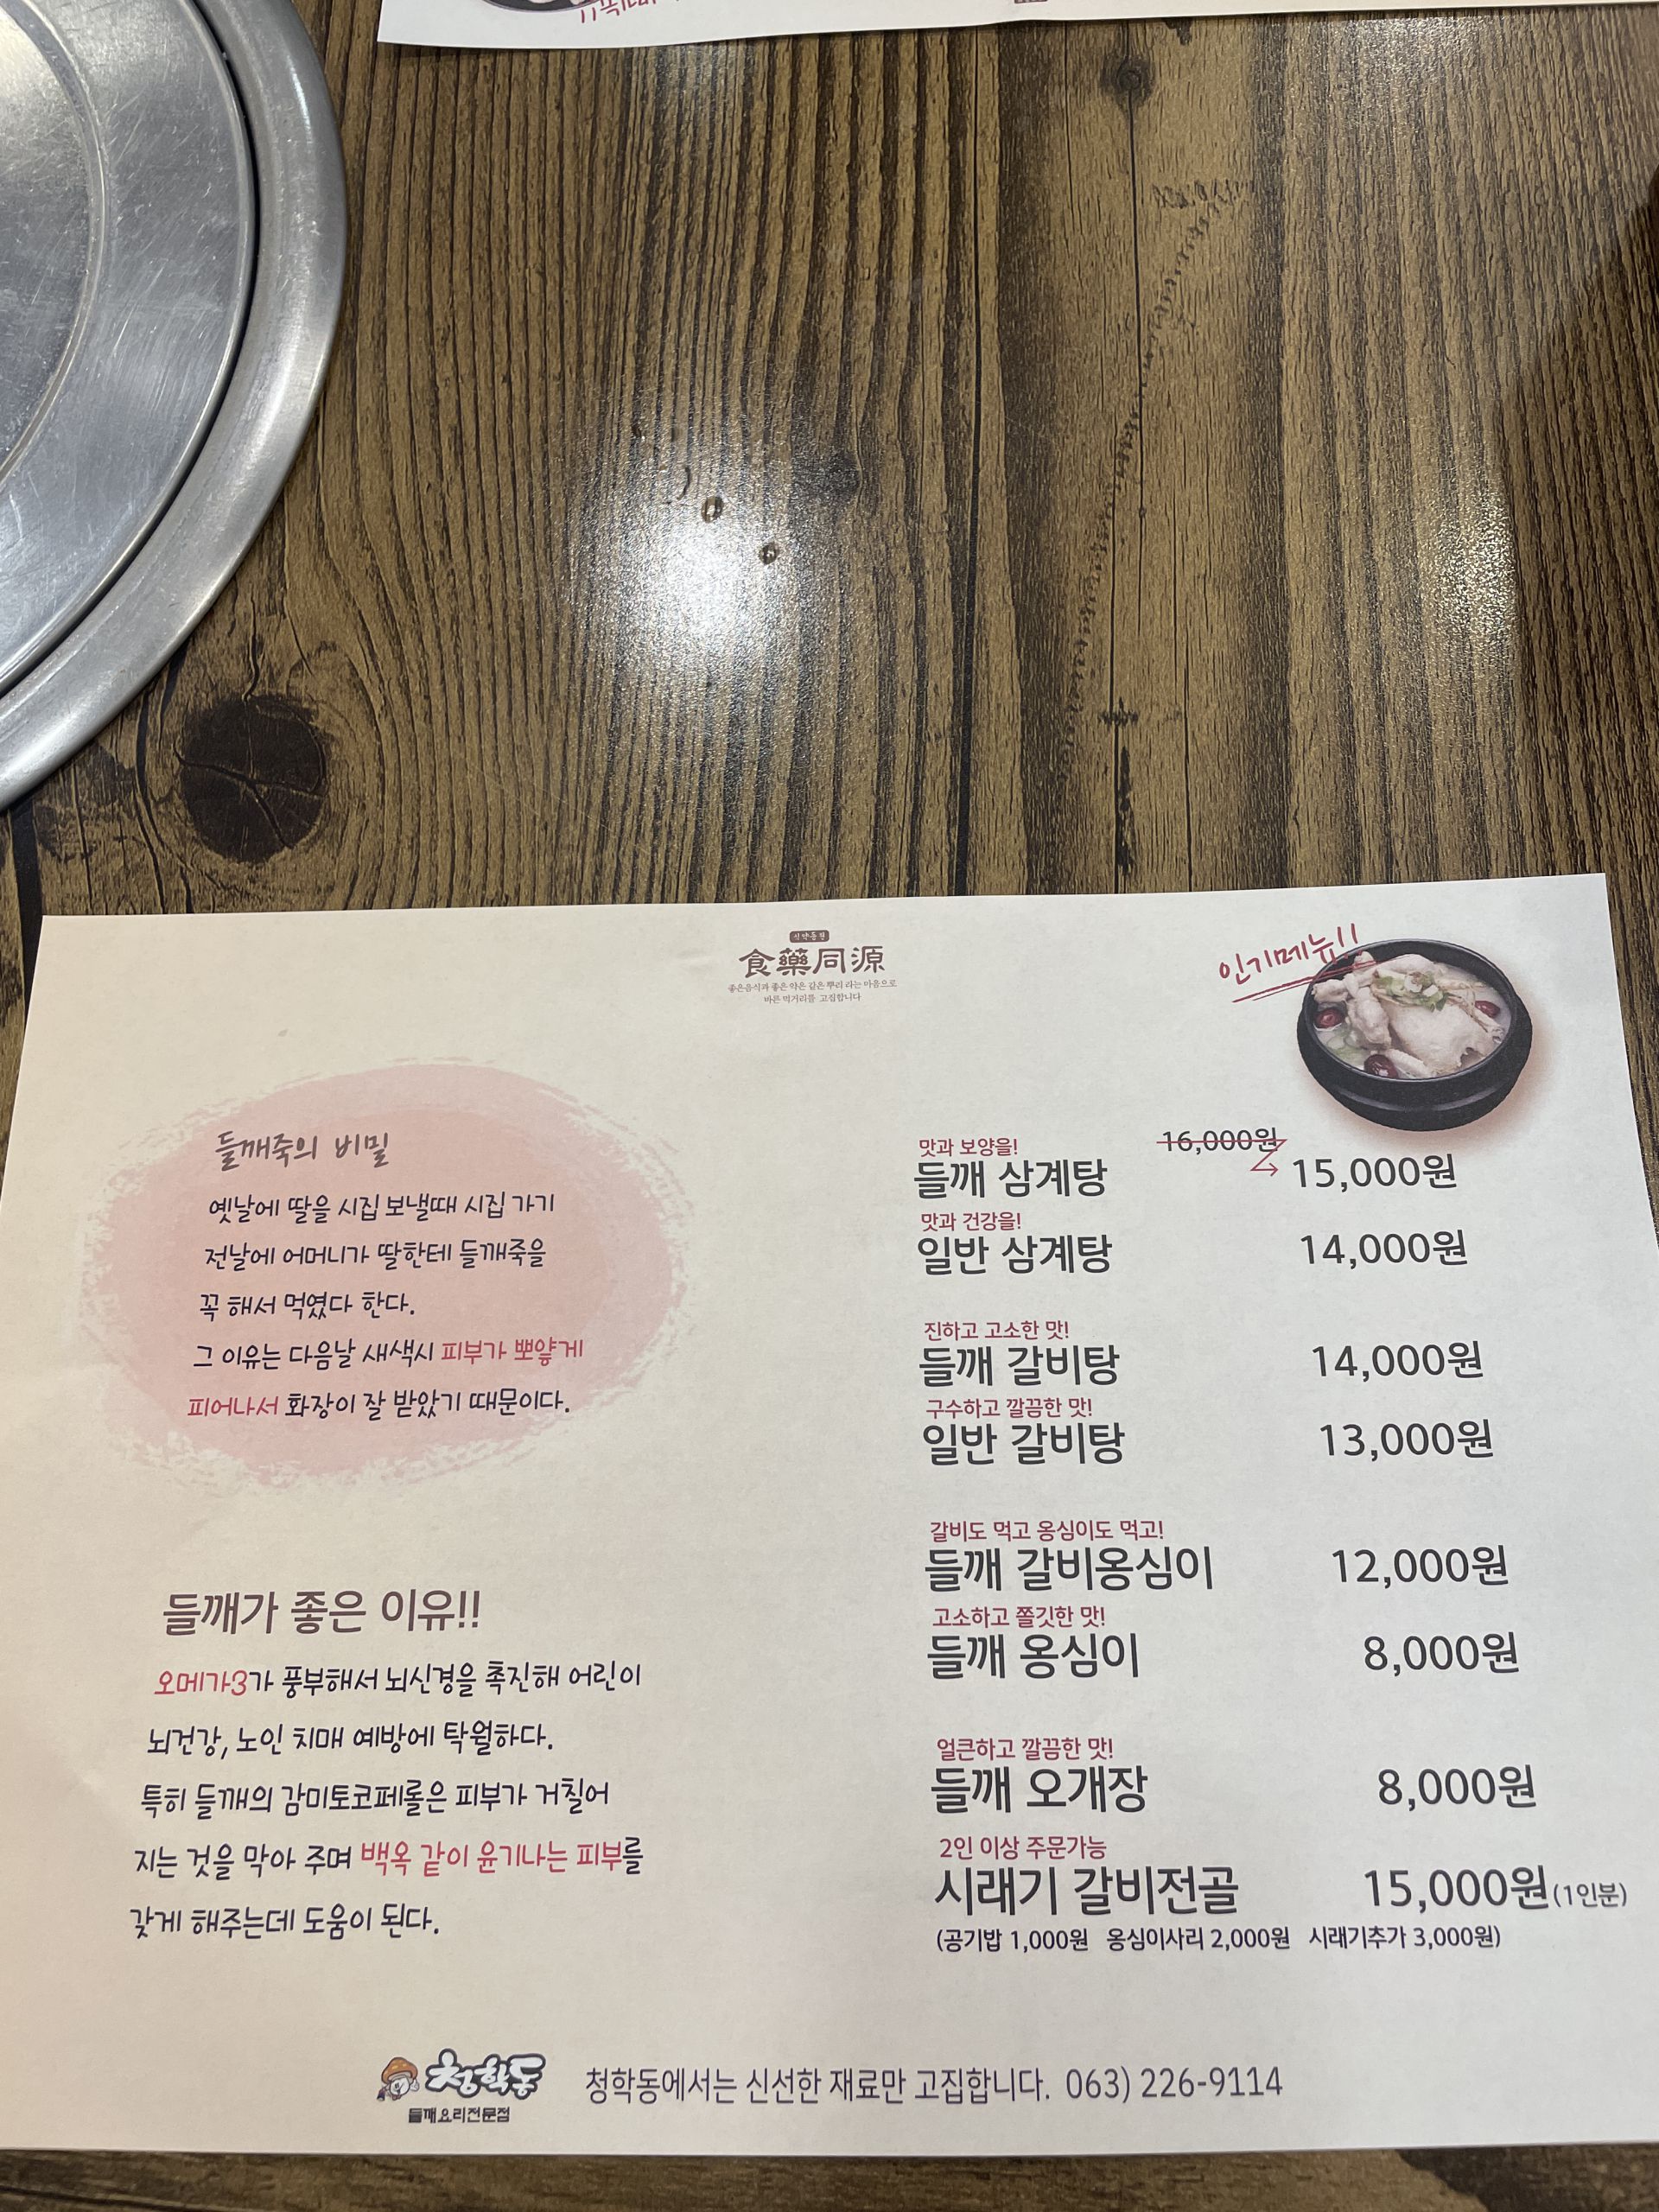 식약동원
食藥同源
좋은음식과 좋은 약은 같은 뿌리 라는 마음으로
바른 먹거리를 고집합니다
인기메뉴!!
들깨죽의 비밀
옛날에 딸을 시집 보낼때 시집 가기
전날에 어머니가 딸한테 들깨죽을
꼭 해서 먹였다 한다.
그 이유는 다음날 새색시 피부가 뽀얗게
피어나서 화장이 잘 받았기 때문이다.
들깨가 좋은 이유!!
오메가3가 풍부해서 뇌신경을 촉진해 어린이
뇌건강, 노인 치매 예방에 탁월하다.
특히 들깨의 감미토코페롤은 피부가 거칠어
지는 것을 막아 주며 백옥 같이 윤기나는 피부를
갖게 해주는데 도움이 된다.
맛과 보양을! 16,000원
들깨 삼계탕 15,000원
맛과 건강을!
일반 삼계탕 14,000원
진하고 고소한 맛!
들깨 갈비탕 14,000원
구수하고 깔끔한 맛!
일반 갈비탕 13,000원
갈비도 먹고 옹심이도 먹고!
들깨 갈비옹심이 12,000원
고소하고 쫄깃한 맛!
들깨 옹심이 8,000원
얼큰하고 깔끔한 맛!
들깨 오개장 8,000원
2인 이상 주문가능
시래기 갈비전골 15,000원(1인분)
(공기밥 1,000원 옹심이사리 2,000원 시래기추가 3,000원)
청학동
들깨요리전문점
청학동에서는 신선한 재료만 고집합니다. 063) 226-9114